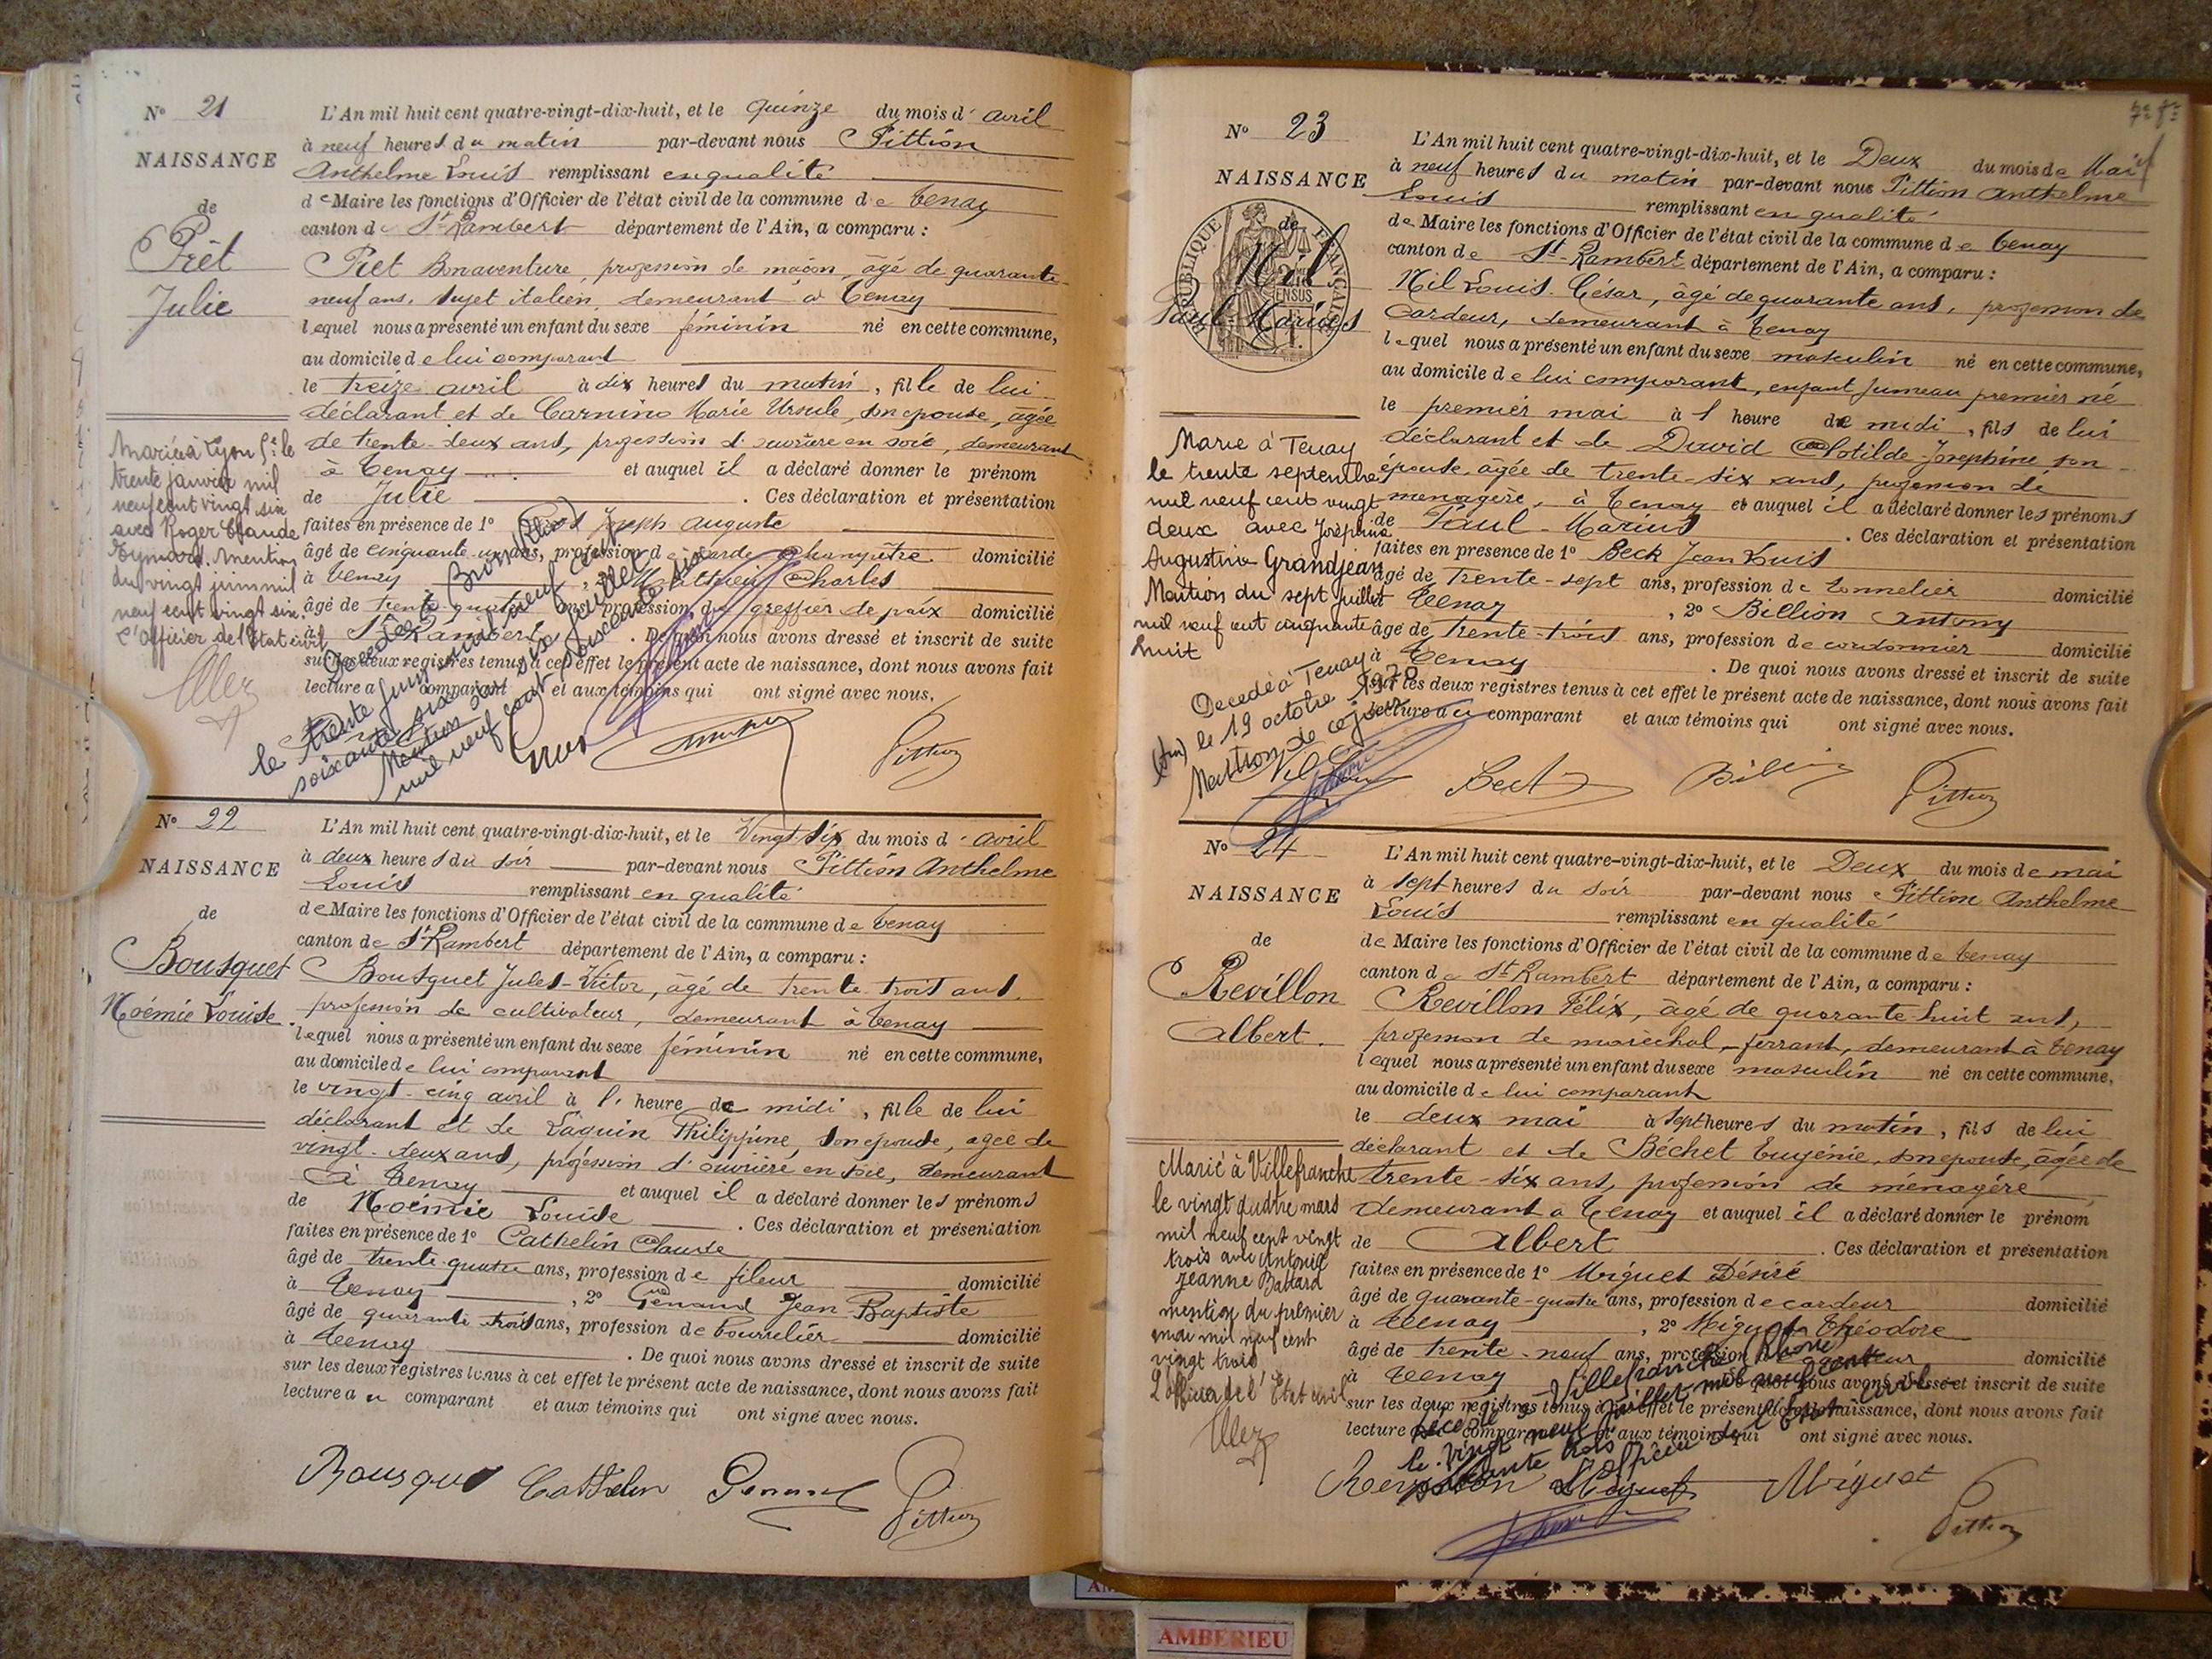 N° 21
NAISSANCE
de
Piet
Julie
L'An mil huit cent quatre-vingt-dix-huit, et le quinze du mois d'avril
à neuf heures du matin par-devant nous Pittion
Anthelme Louis remplissant en qualité
de Maire les fonctions d'Officier de l'état civil de la commune de Tenay
canton de St-Rambert département de l'Ain, a comparu :
Piet Bonaventure, profession de maçon, âgé de quarante-
neuf ans, sujet italien, demeurant à Tenay
lequel nous a présenté un enfant du sexe féminin né en cette commune,
au domicile de lui comparant
le treize avril à dix heures du matin, fille de lui
déclarant et de Carnino Marie Ursule, son épouse, âgée
de trente-deux ans, profession d'ouvrière en soie, demeurant
à Tenay et auquel il a déclaré donner le prénom
de Julie . Ces déclaration et présentation
faites en présence de 1° Joseph Auguste
âgé de cinquante-un ans, profession de garde champêtre domicilié
à Tenay , 2° Matthieu Charles
âgé de trente-quatre ans, profession de greffier de paix domicilié
à St Rambert . De quoi nous avons dressé et inscrit de suite
sur les deux registres tenus à cet effet le présent acte de naissance, dont nous avons fait
lecture a comparant et aux témoins qui ont signé avec nous.
Mariée à Lyon 5e le
trente janvier mil
neuf cent vingt six
avec Roger Claude
Eymard. Mention
du vingt juin mil
neuf cent vingt six.
L'Officier de l'Etat civil
Décédée à Bron (Rhône)
le trente juin mil neuf cent
soixante six
Mention du six juillet
mil neuf cent soixante six
Gros
Pittion
N° 22
NAISSANCE
de
Bousquet
Noémie Louise
L'An mil huit cent quatre-vingt-dix-huit, et le Vingt-six du mois d'avril
à deux heures du soir par-devant nous Pittion Anthelme
Louis remplissant en qualité
de Maire les fonctions d'Officier de l'état civil de la commune de Tenay
canton de St-Rambert département de l'Ain, a comparu :
Bousquet Jules-Victor, âgé de trente-trois ans,
profession de cultivateur, demeurant à Tenay
lequel nous a présenté un enfant du sexe féminin né en cette commune,
au domicile de lui comparant
le vingt-cinq avril à 1. heure de midi, fille de lui
déclarant et de Laguin Philippine, son épouse, âgée de
vingt-deux ans, profession d'ouvrière en soie, demeurant
à Tenay et auquel il a déclaré donner les prénoms
de Noémie Louise . Ces déclaration et présentation
faites en présence de 1° Cathelin Claude
âgé de trente-quatre ans, profession de fileur domicilié
à Tenay , 2° Genaud Jean-Baptiste
âgé de quarante-trois ans, profession de bourrelier domicilié
à Tenay . De quoi nous avons dressé et inscrit de suite
sur les deux registres tenus à cet effet le présent acte de naissance, dont nous avons fait
lecture au comparant et aux témoins qui ont signé avec nous.
Bousquet Cathelin Genaud Pittion
7e f
N° 23
NAISSANCE
de
RÉPUBLIQUE FRANÇAISE
Nil
Paul-Marius
L'An mil huit cent quatre-vingt-dix-huit, et le Deux du mois de Mai
à neuf heures du matin par-devant nous Pittion Anthelme
Louis remplissant en qualité
de Maire les fonctions d'Officier de l'état civil de la commune de Tenay
canton de St-Rambert département de l'Ain, a comparu :
Nil Louis-César, âgé de quarante ans, profession de
cardeur, demeurant à Tenay
lequel nous a présenté un enfant du sexe masculin né en cette commune,
au domicile de lui comparant, enfant jumeau premier né
le premier mai à 1 heure de midi, fils de lui
déclarant et de David Clotilde-Joséphine, son
épouse, âgée de trente-six ans, profession de
ménagère, à Tenay et auquel il a déclaré donner les prénoms
de Paul-Marius . Ces déclaration et présentation
faites en présence de 1° Beck Jean Louis
âgé de trente-sept ans, profession de tonnelier domicilié
à Tenay , 2° Billion Antony
âgé de trente-trois ans, profession de cordonnier domicilié
à Tenay . De quoi nous avons dressé et inscrit de suite
sur les deux registres tenus à cet effet le présent acte de naissance, dont nous avons fait
lecture au comparant et aux témoins qui ont signé avec nous.
Marié à Tenay
le trente septembre
mil neuf cent vingt
deux avec Joséphine
Augustine Grandjean
Mention du sept juillet
mil neuf cent cinquante
huit
Décédé à Tenay
(Ain) le 19 octobre 1970
Mention de ce jour
Nil Beck Billion Pittion
N° 24
NAISSANCE
de
Revillon
Albert.
L'An mil huit cent quatre-vingt-dix-huit, et le Deux du mois de mai
à sept heures du soir par-devant nous Pittion Anthelme
Louis remplissant en qualité
de Maire les fonctions d'Officier de l'état civil de la commune de Tenay
canton de St-Rambert département de l'Ain, a comparu :
Revillon Félix, âgé de quarante-huit ans,
profession de maréchal-ferrant, demeurant à Tenay
lequel nous a présenté un enfant du sexe masculin né en cette commune,
au domicile de lui comparant
le deux mai à sept heures du matin, fils de lui
déclarant et de Béchet Eugénie, son épouse, âgée de
trente-six ans, profession de ménagère
demeurant à Tenay et auquel il a déclaré donner le prénom
de Albert . Ces déclaration et présentation
faites en présence de 1° Miguet Désiré
âgé de quarante-quatre ans, profession de cardeur domicilié
à Tenay , 2° Miguet Théodore
âgé de trente-neuf ans, profession de domicilié
à Tenay . De quoi nous avons dressé et inscrit de suite
sur les deux registres tenus à cet effet le présent acte de naissance, dont nous avons fait
lecture au comparant et aux témoins qui ont signé avec nous.
Marié à Villefranche
le vingt quatre mars
mil neuf cent vingt
trois avec Antonie
Jeanne Battard
mention du premier
mai mil neuf cent
vingt trois
L'officier de l'Etat civil
Décédé à Villefranche (Rhône)
le vingt neuf juillet mil neuf cent
soixante trois L'officier de l'état civil
Revillon Miguet Miguet Pittion
AMBERIEU